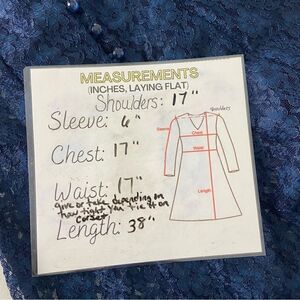 MEASUREMENTS
(INCHES, LAYING FLAT)
Shoulders: 17"
Sleeve: 6"
Chest: 17"
Waist: 17"
give or take depending on
how tight you tie it on
corset
Length: 38"
Shoulders
Sleeve
Chest
Waist
Length